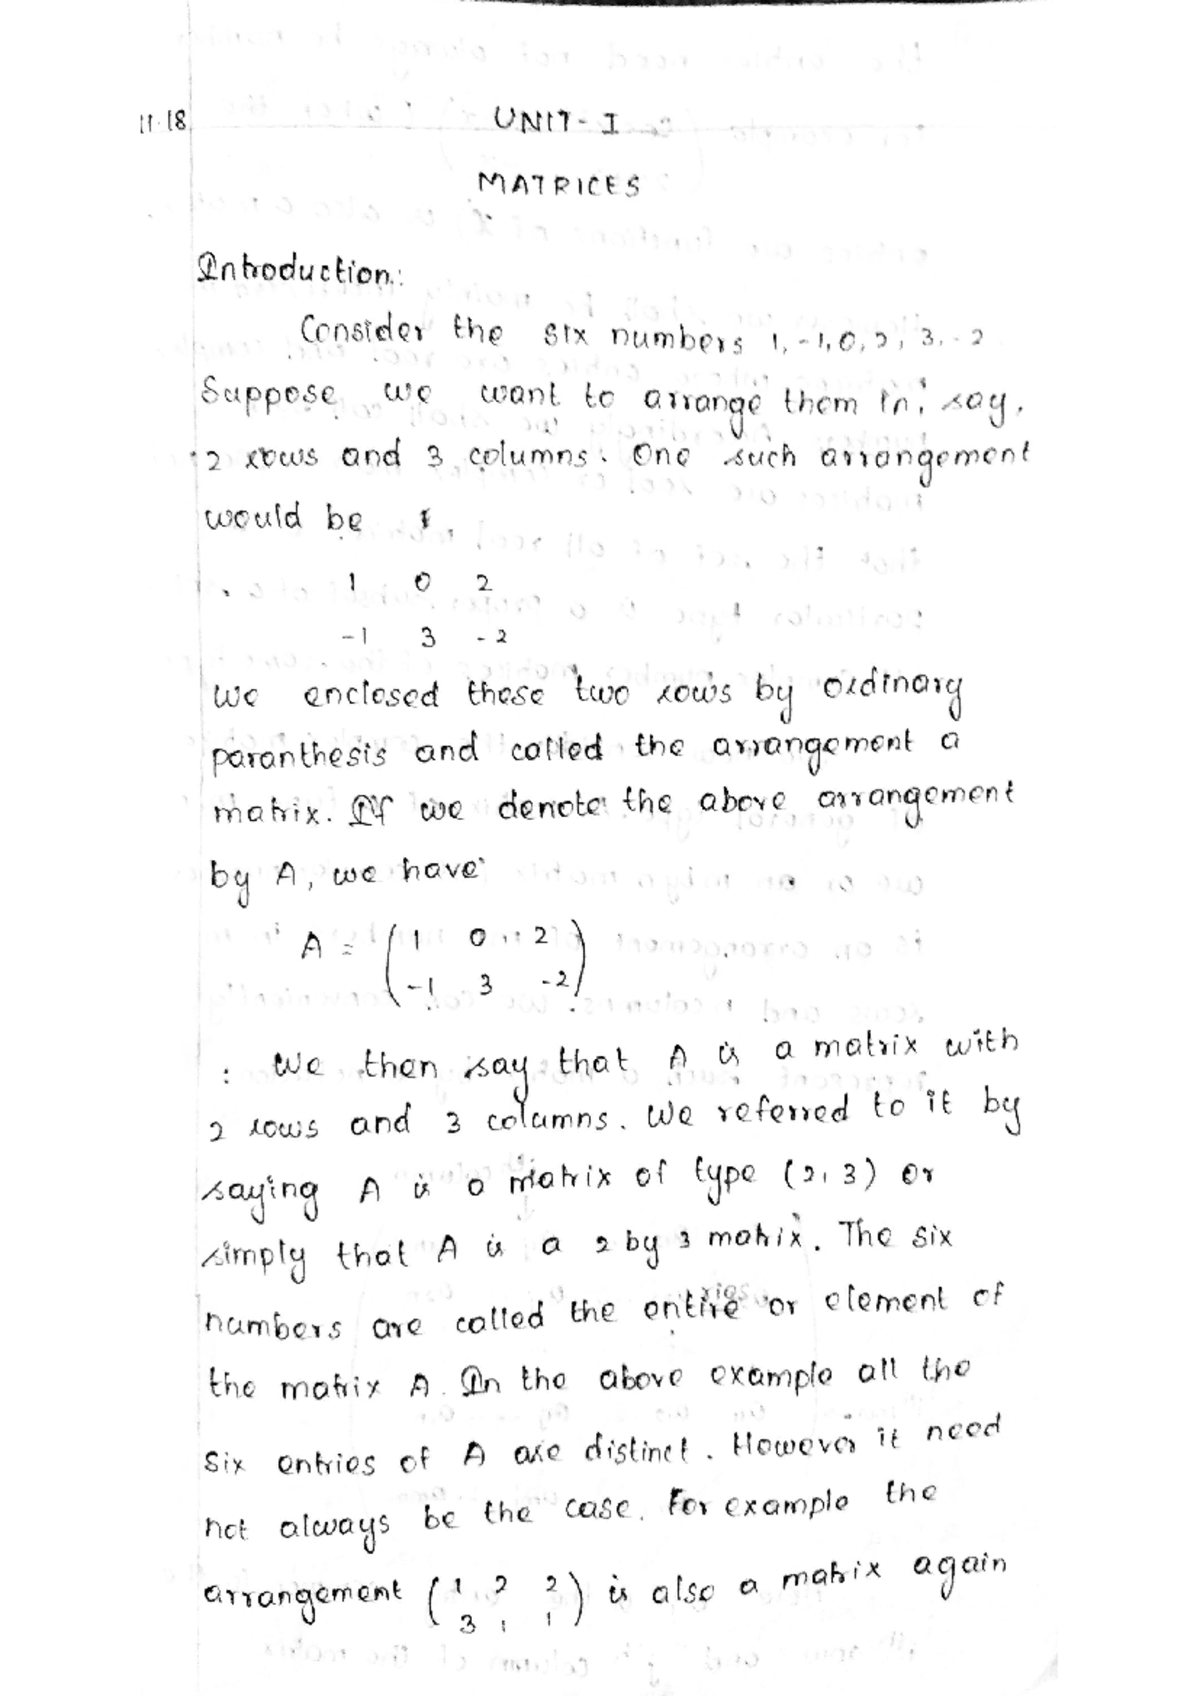 11.18
UNIT-I
MATRICES
Introduction:
Consider the six numbers 1, -1, 0, 2, 3, -2
Suppose we want to arrange them in, say,
2 rows and 3 columns. One such arrangement
would be
1 0 2
-1 3 -2
We enclosed these two rows by ordinary
paranthesis and called the arrangement a
matrix. If we denote the above arrangement
by A, we have
A = ( 1 0 2
-1 3 -2 )
We then say that A is a matrix with
2 rows and 3 columns. We referred to it by
saying A is a matrix of type (2, 3) or
simply that A is a 2 by 3 matrix. The six
numbers are called the entries or element of
the matrix A. In the above example all the
Six entries of A are distinct. However it need
not always be the case. For example the
arrangement ( 1 2 2
3 1 1 ) is also a matrix again